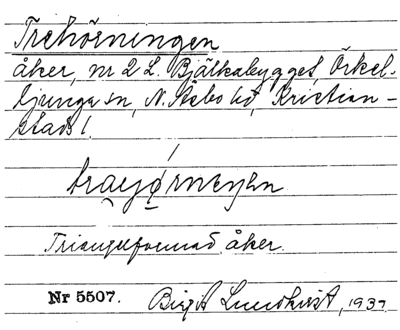 Trehörningen
åker, nr 2 L. Bjälkabygget, Örkel-
ljunga sn, N. Åsbo hd, Kristian-
stads l.
Triangelformad åker.
Nr 5507. Birgit Lundkvist, 1937